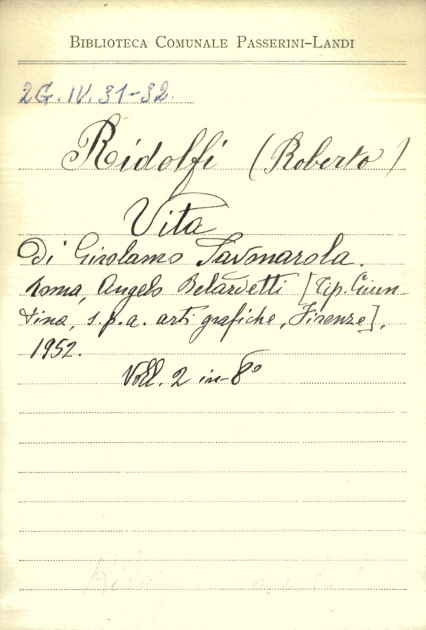 BIBLIOTECA COMUNALE PASSERINI-LANDI
2G. IV. 31-32.
Ridolfi (Roberto)
Vita
di Girolamo Savonarola.
Roma, Angelo Belardetti [Tip. Giun-
tina, s.p.a. arti grafiche, Firenze],
1952.
Voll. 2 in-8°